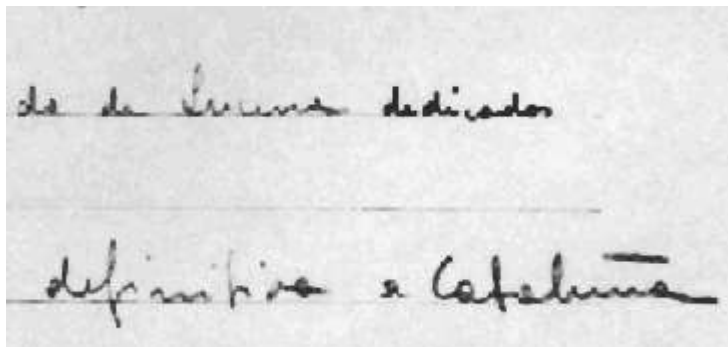 da de Lucena dedicados
definitiva a Cataluña